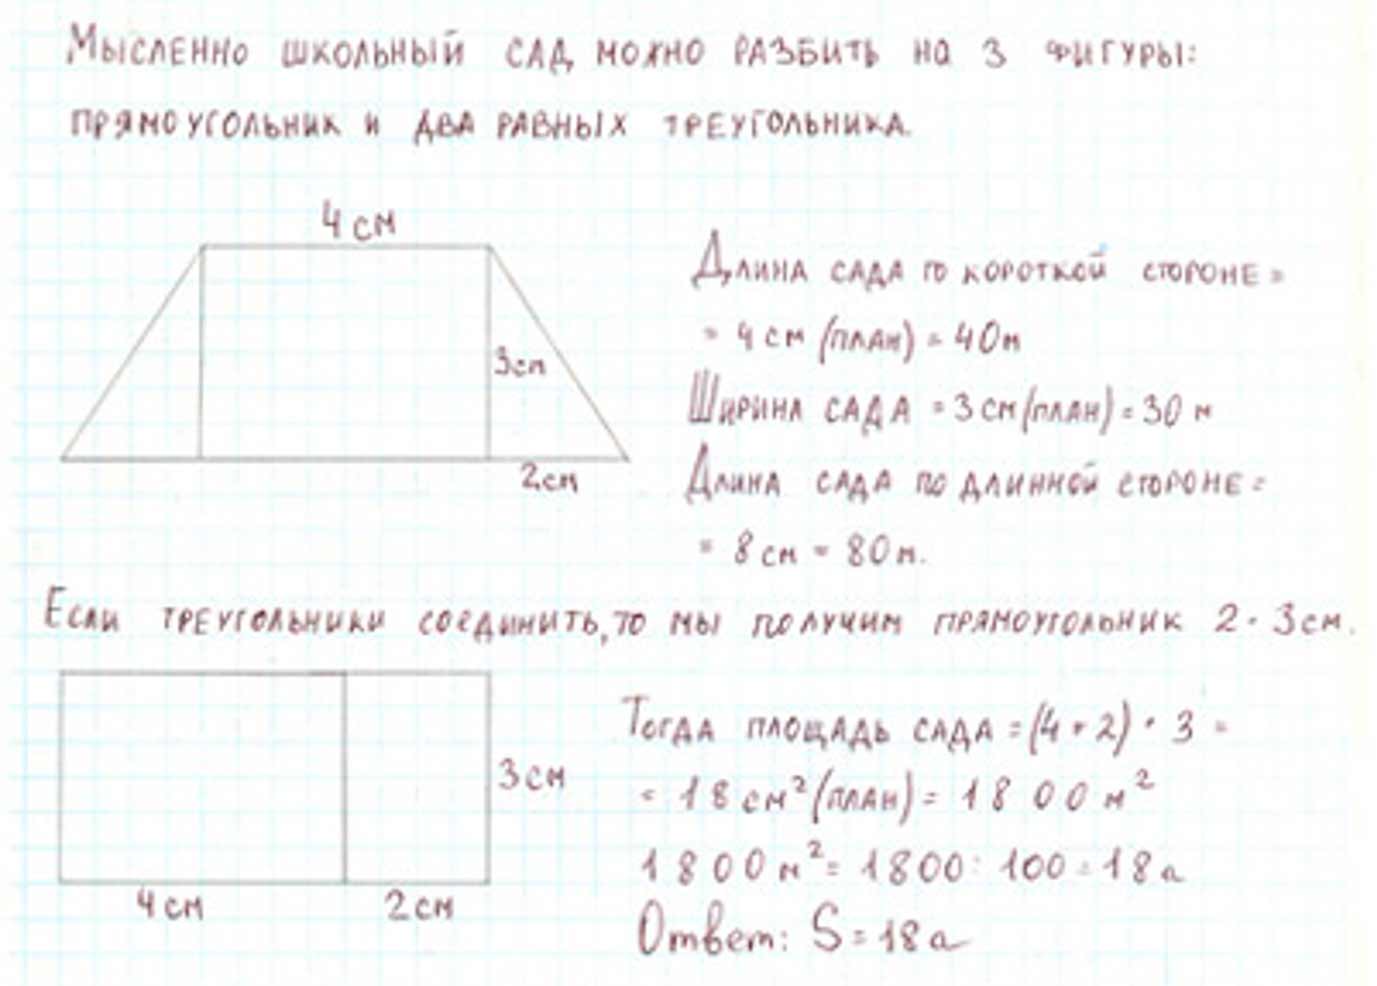 Мысленно школьный сад можно разбить на 3 фигуры:
прямоугольник и два равных треугольника.
4 см
3см
2см
Длина сада по короткой стороне =
= 4 см (план) = 40м
Ширина сада = 3 см (план) = 30 м
Длина сада по длинной стороне =
= 8 см = 80м.
Если треугольники соединить, то мы получим прямоугольник 2 · 3см.
3 см
4 см
2 см
Тогда площадь сада = (4 + 2) · 3 =
= 18 см² (план) = 1800 м²
1800 м² = 1800 : 100 = 18а
Ответ: S = 18а